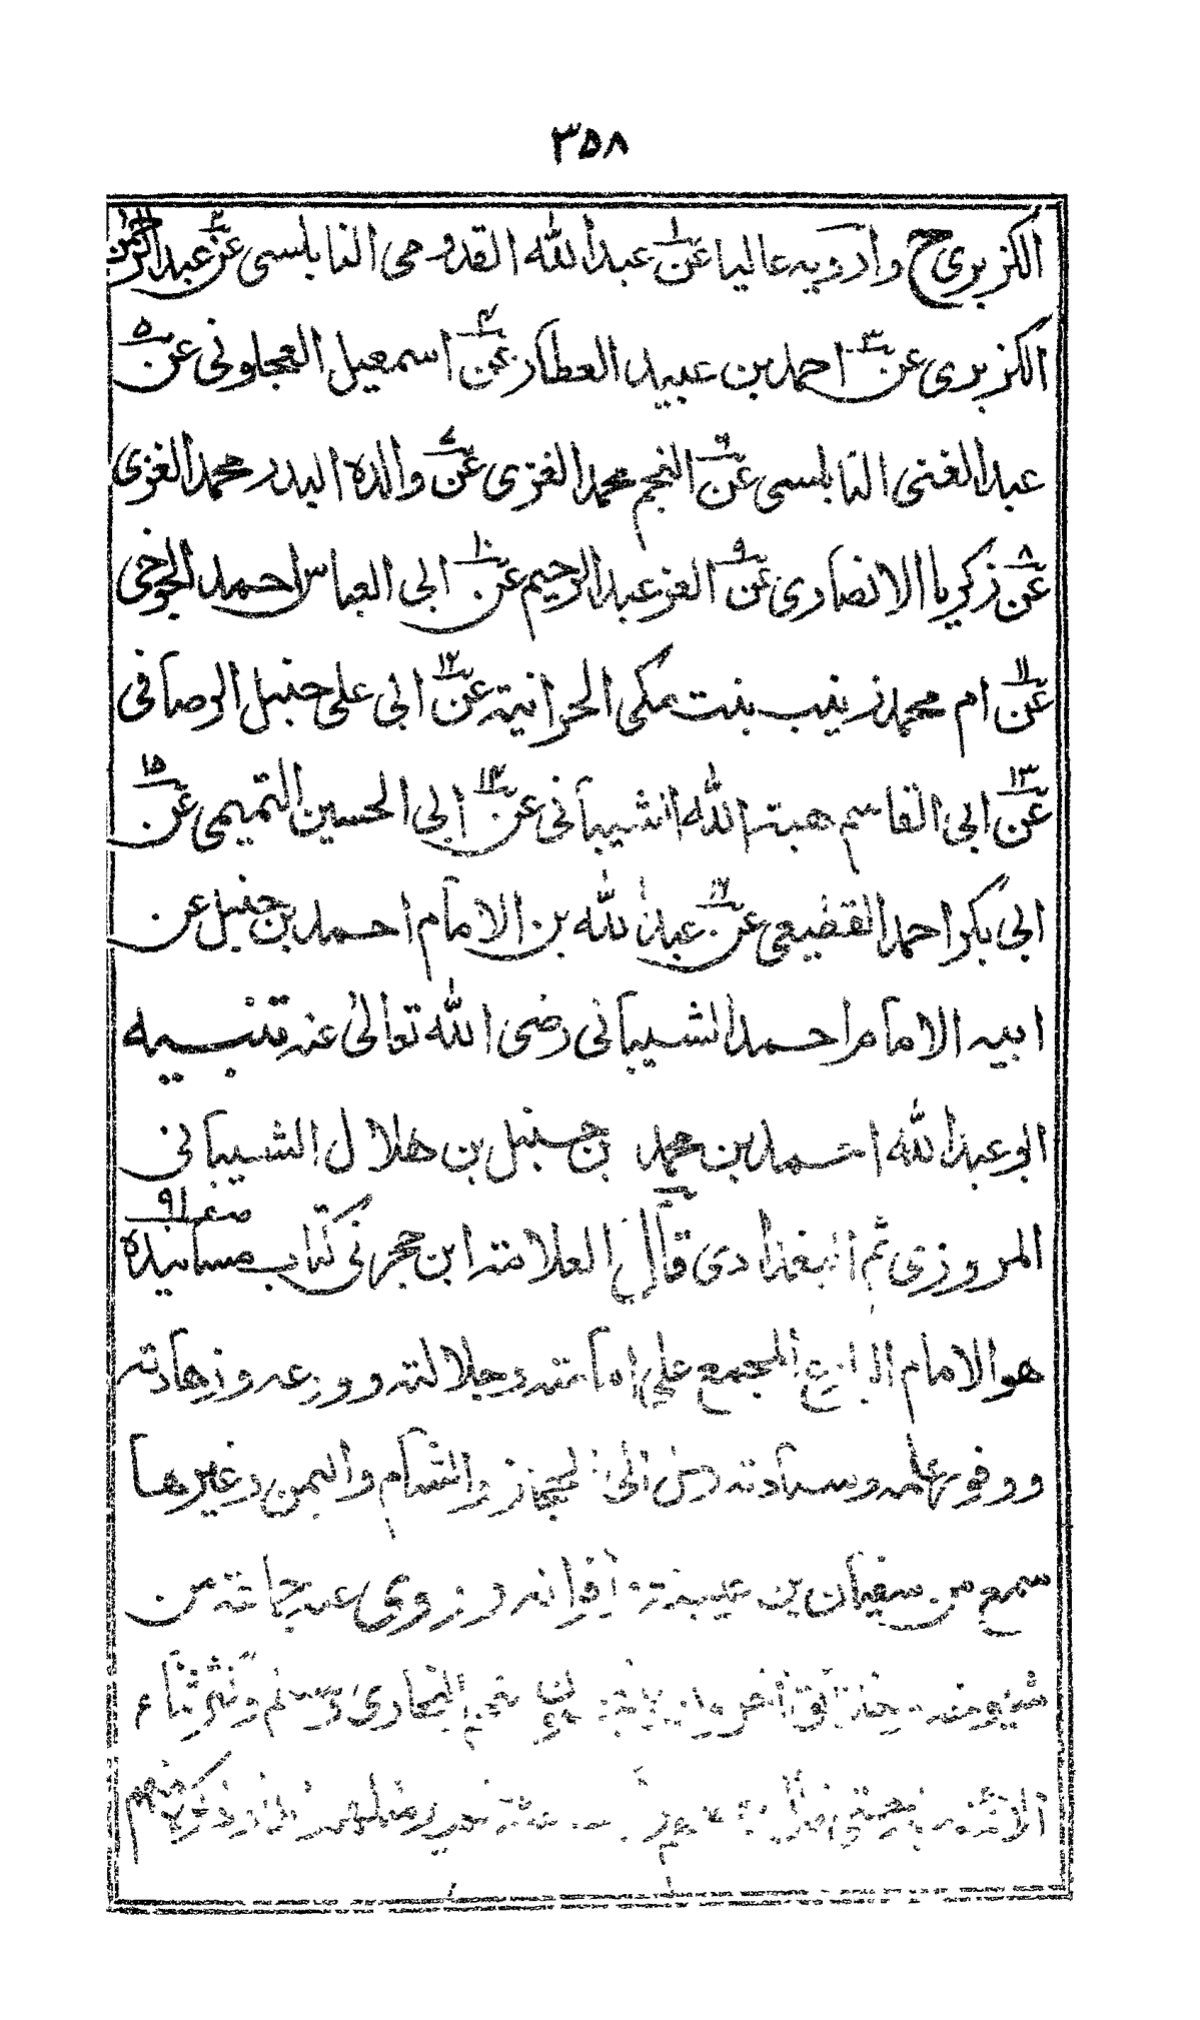 ٣٥٨
الكزبري ح وارويه عاليا عن١ عبدالله القدومي النابلسي عن٢ عبدالرحمن
الكزبرى عن٣ احمد بن عبيد العطار عن٤ اسمعيل العجلونى عن٥
عبدالغنى النابلسى عن٦ النجم محمد الغزى عن٧ والده البدر محمد الغزى
عن٨ زكريا الانصارى عن٩ العز عبدالرحيم عن١٠ ابى العباس احمد الجوخى
عن١١ ام محمد زينب بنت مكى الحرانية عن١٢ ابى على حنبل الرصافى
عن١٣ ابى القاسم هبة الله الشيبانى عن١٤ ابى الحسين التميمى عن١٥
ابى بكر احمد القطيعى عن١٦ عبدالله بن الامام احمد بن حنبل عن
ابيه الامام احمد الشيبانى رضى الله تعالى عنه تنبيه
ابو عبدالله احمد بن محمد بن حنبل بن هلال الشيبانى
صفر ٩١
المروزى ثم البغدادى قال العلامة ابن حجر فى كتاب مسانيده
هو الامام البارع المجمع على امامته وجلالته وورعه وزهادته
ووفور علمه وسيادته رحل الى الحجاز والشام واليمن وغيرها
سمع من سفيان بن عيينة واقرانه وروى عنه جماعة من
شيوخه وخلائق اخرون لا البخارى ومسلم وثناء
الائمة